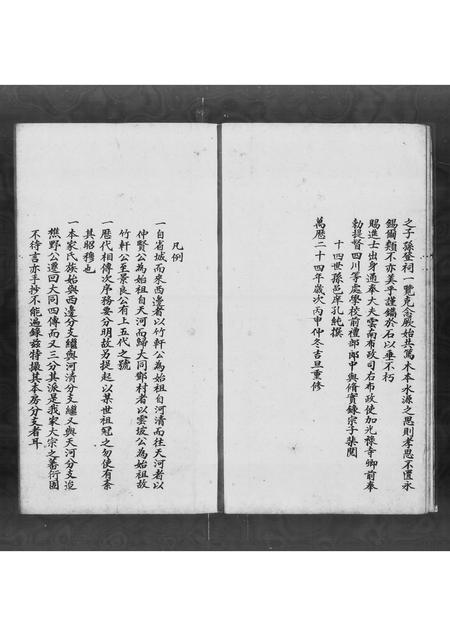 之子孫登祠一覽克念厥始共篤木本水源之思則孝思不匱永
錫爾類不亦美乎謹鐫於石以垂不朽
賜進士出身通奉大夫雲南布政司右布政使加光祿寺卿前奉
勅提督四川等處學校前禮部郎中與脩實錄宗子柴閱
十四世孫邑庠孔純撰
萬曆二十四年歲次丙申仲冬吉旦重修
凡例
一自省城而來西邊者以竹軒公為始祖自河清而往天河者以
仲賢公為始祖自天河而歸大同鄧村者以雲坡公為始祖故
竹軒公至景良公有上五代之號
一歷代相傳次序務要分明故另提起以某世祖冠之勿使有紊
其昭穆也
一本家氏族始與西邊分支繼與河清分支繼又與天河分支迨
樵野公遷回大同四傳而又三分其派是我家大宗之蕃衍固
不待言亦手抄不能遍錄茲特撮其本房分支者耳